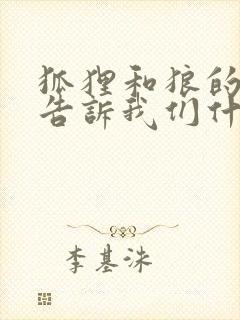 狐狸和狼的
告訴我们什
李基洙